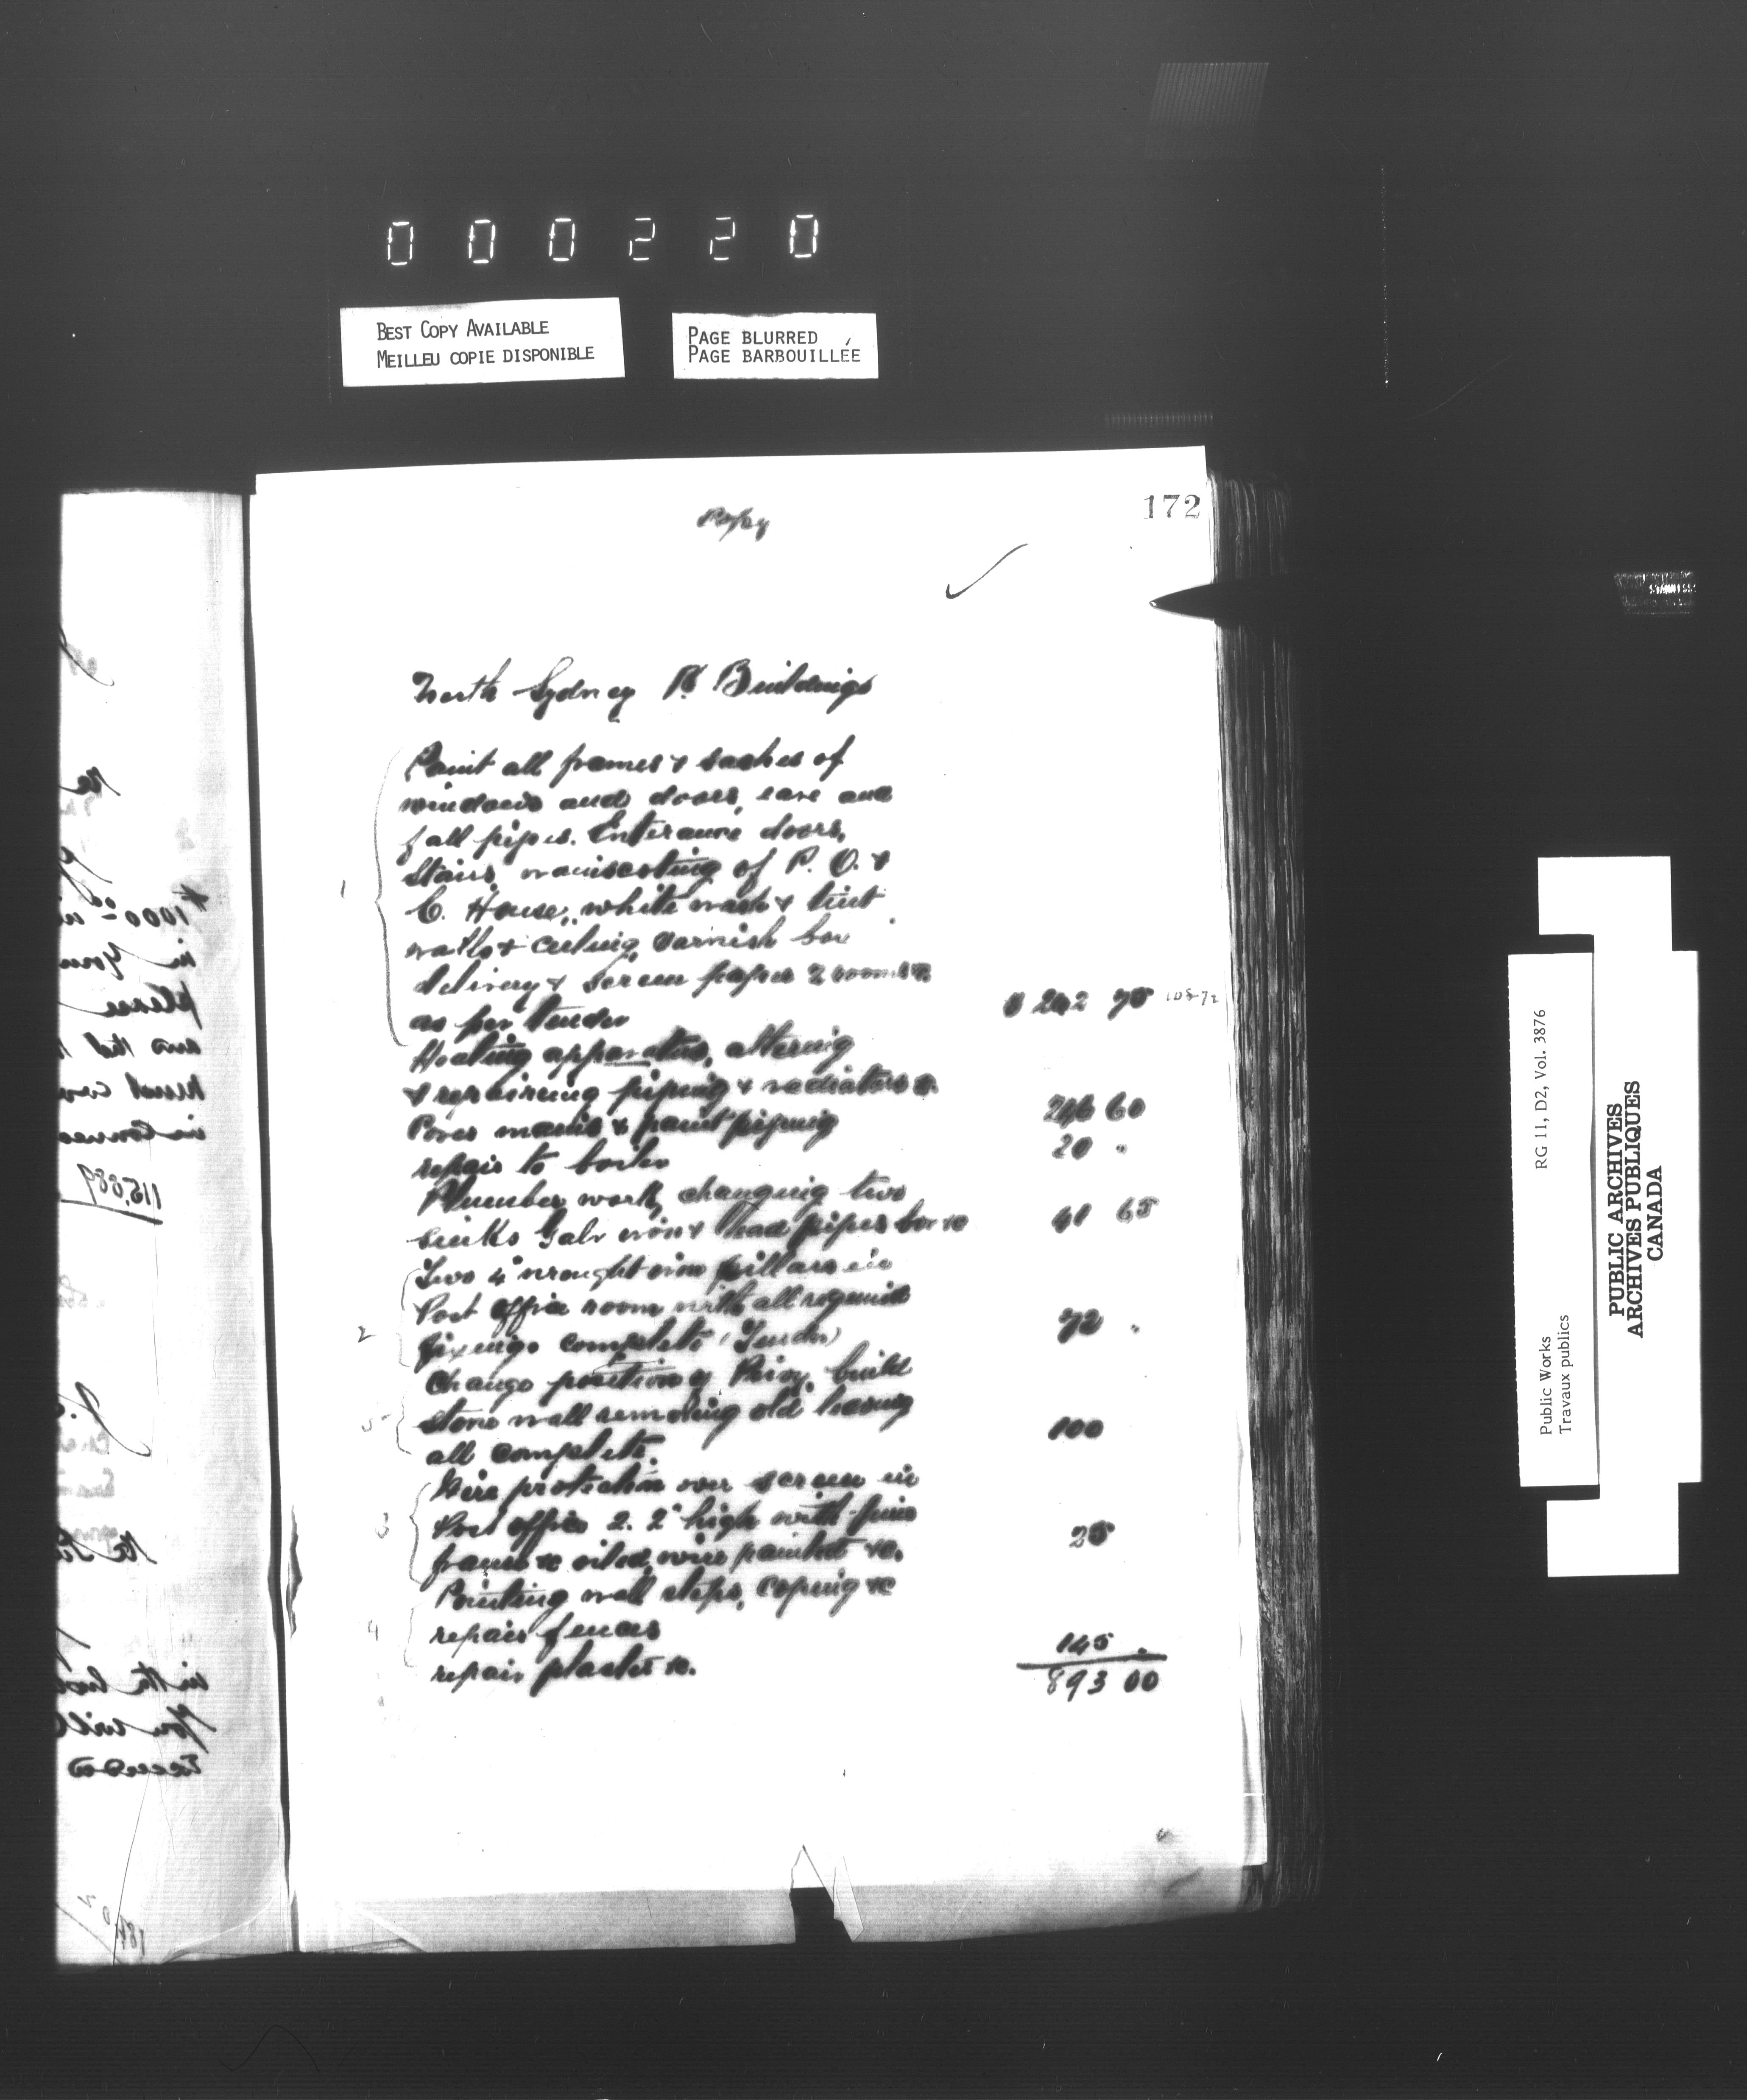 000220
BEST COPY AVAILABLE
MEILLEU COPIE DISPONIBLE
PAGE BLURRED
PAGE BARBOUILLÉE
172
Copy
North Sydney P. Buildings
1
Paint all frames & sashes of
windows and doors, eave and
fall pipes. Enterance doors,
Stairs wainscoting of P. O. &
C. House, white wash & tint
walls & ceiling, varnish box
delivery & screen paper 2 rooms &c
as per Tender
$ 242 75
Heating apparatus, altering
& repairing piping & radiators &
mains & paint piping
246 60
repair to boiler
20 "
Plumber work, changing two
sinks Galv iron & lead pipes &c
41 65
2
Two 4" wrought iron pillars in
Post office room with all
fixings complete (Tender)
72 "
5
Change position of Privy, build
stone wall removing old leaving
all complete.
100
3
Wire protection over screen in
Post office 2. 2" high with pine
frame &c oiled, wire painted &c.
25
4
Pointing wall steps, coping &c
repair fences
repair plaster &c.
145 "
893 00
$1000
in your
please
and that
115,889
in the
You will
RG 11, D2, Vol. 3876
Public Works
Travaux publics
PUBLIC ARCHIVES
ARCHIVES PUBLIQUES
CANADA